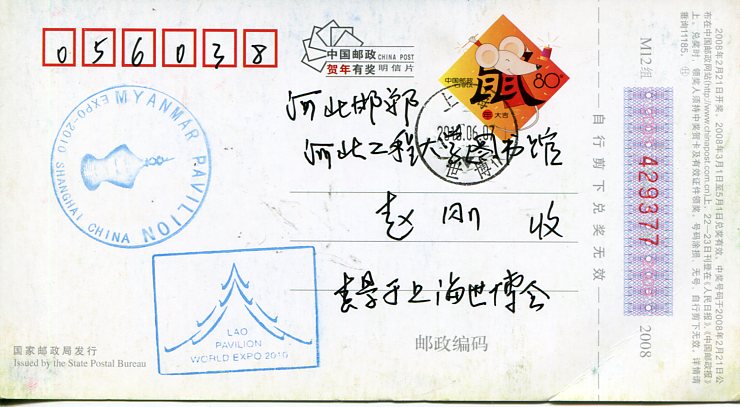 056038
中国邮政 CHINA POST
贺年有奖 明信片
中国邮政
80分
鼠
大吉
河北邯郸
河北工程大学图书馆
赵刚 收
于上海世博会
上海
2010.06.07
世博
MYANMAR PAVILION
EXPO-2010 SHANGHAI CHINA
LAO
PAVILION
WORLD EXPO 2010
国家邮政局发行
Issued by the State Postal Bureau
邮政编码
自行剪下兑奖无效
M12组
429377
2008
2008年2月21日开奖。2008年3月1日至5月1日兑奖有效。中奖号码于2008年2月21日公
布在中国邮政网站(http://www.chinapost.com.cn)上，22—23日刊登在《人民日报》、《中国邮政报》
上。兑奖时，领奖人须持中奖贺卡及有效证件领奖。号码涂损、无号、自行剪下无效，详情请
查询11185。